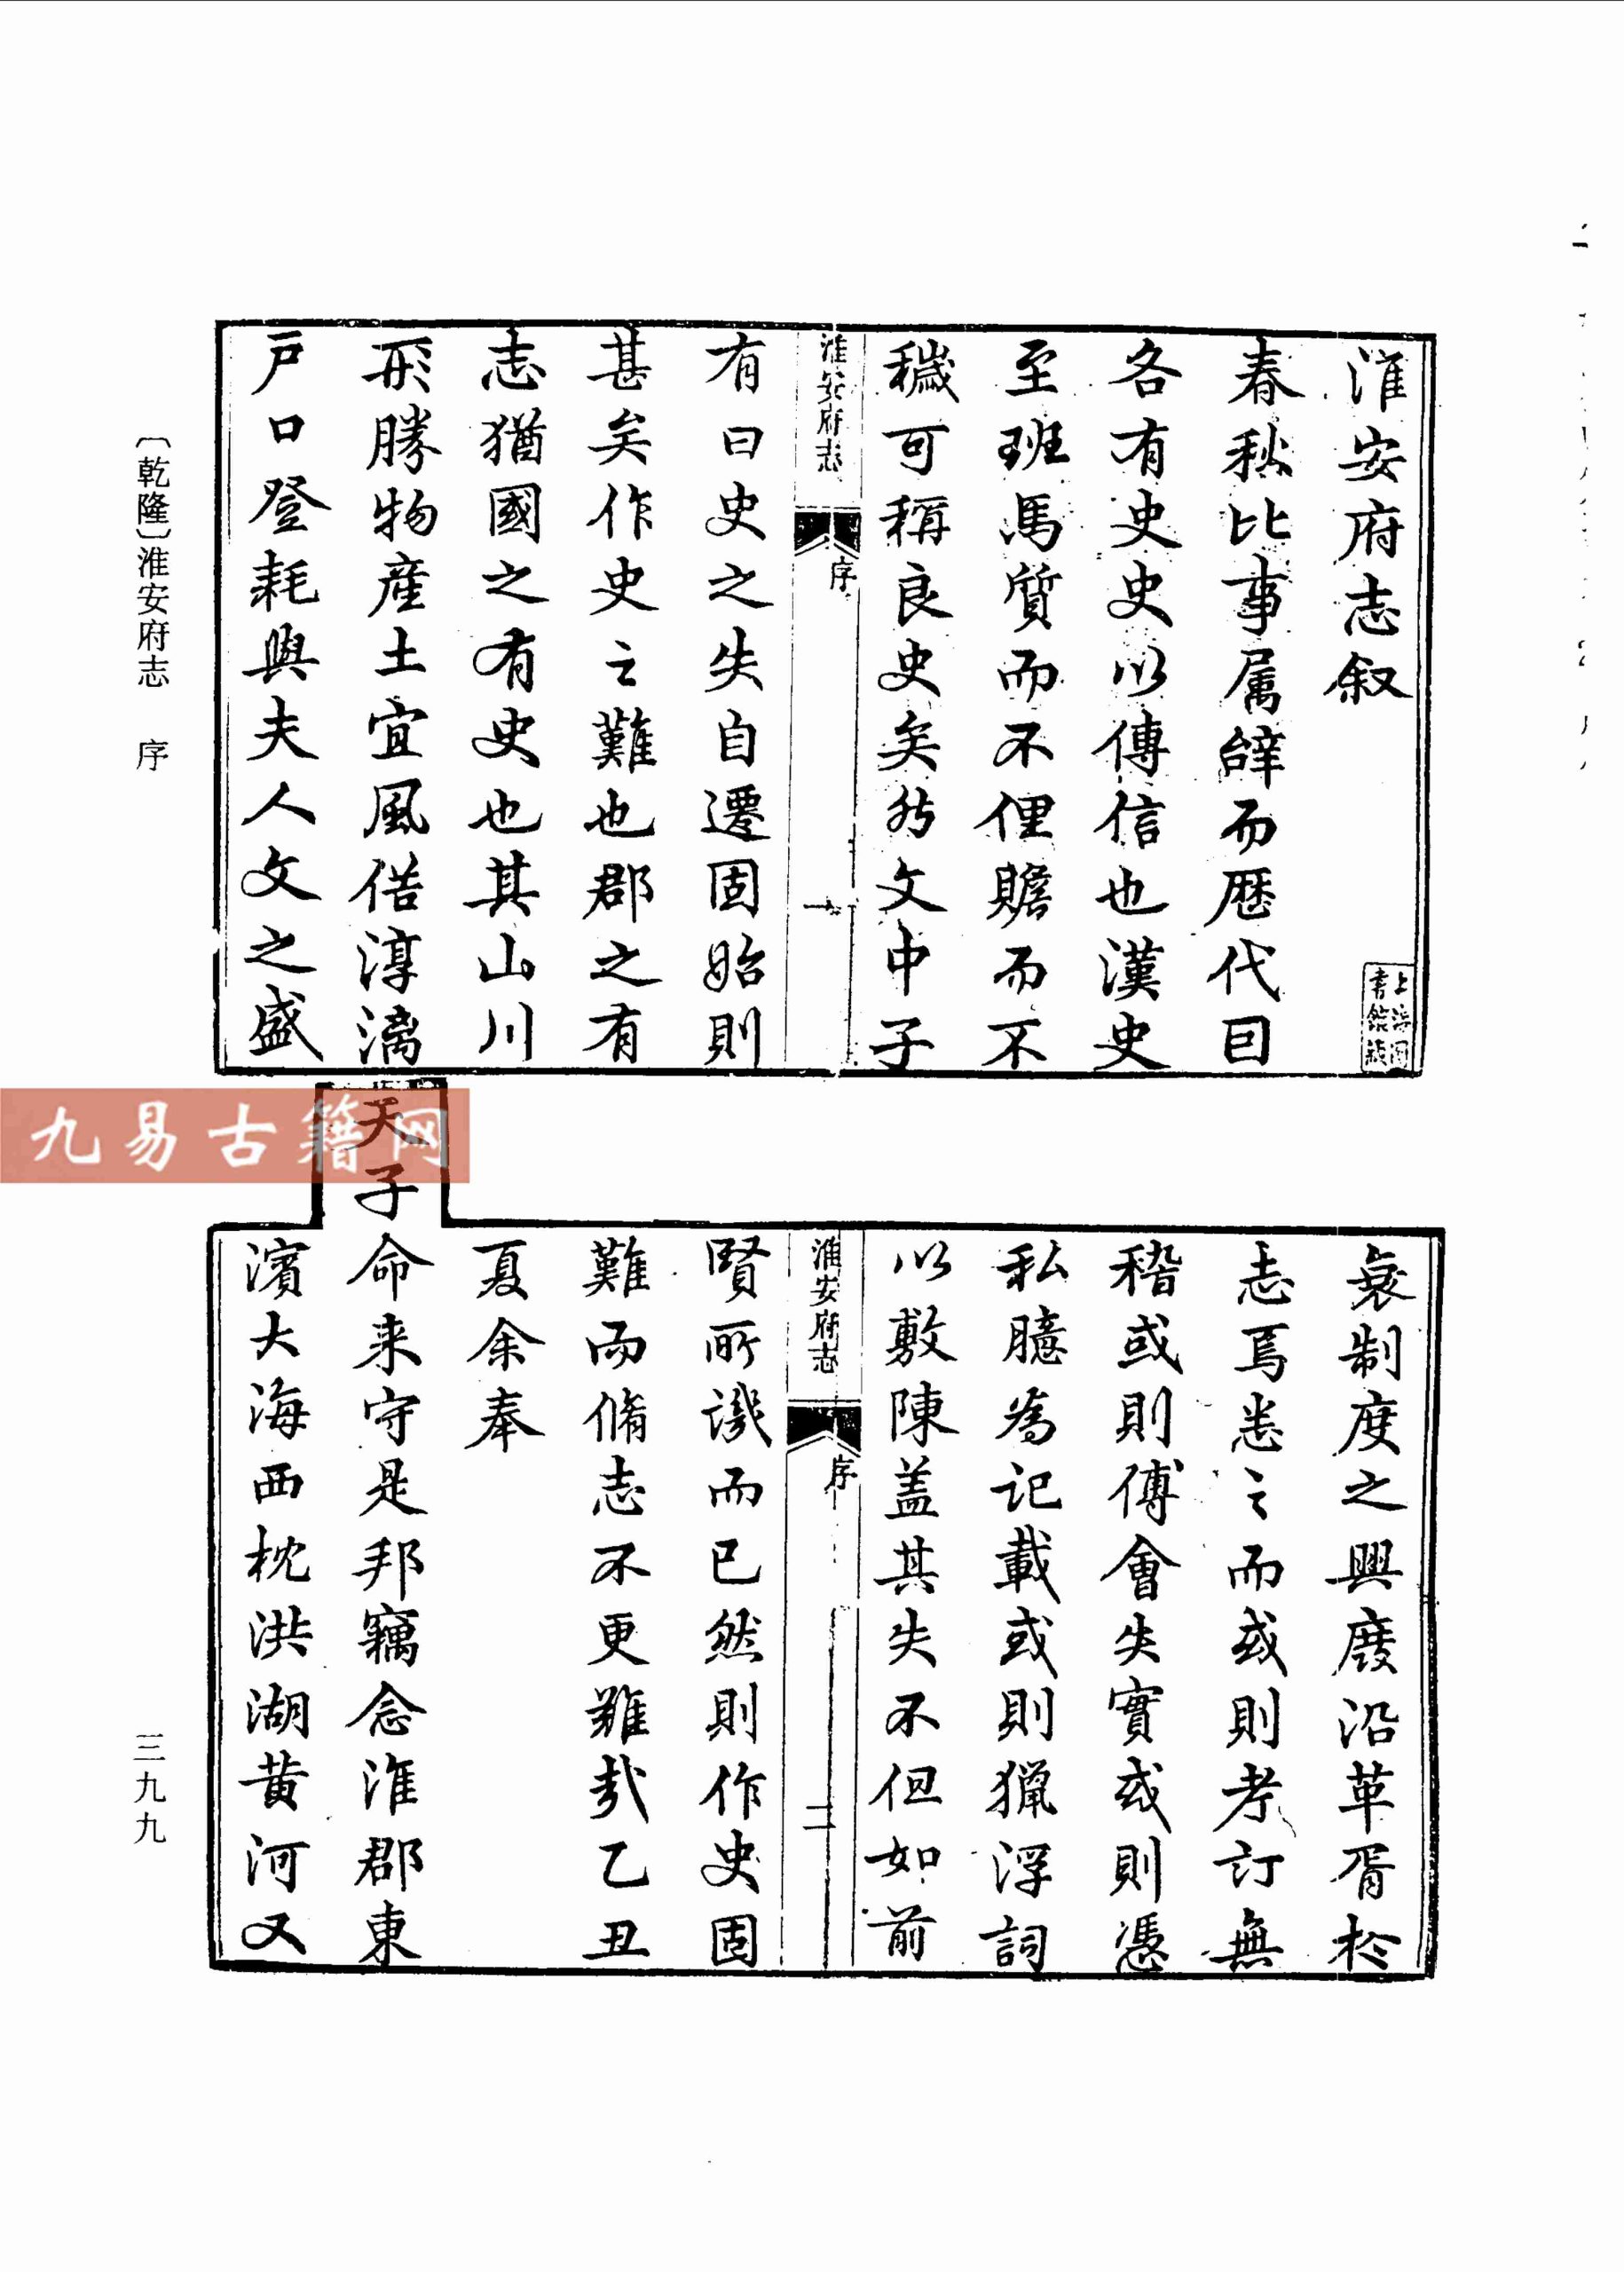 淮安府志叙
春秋比事属辭而歷代囙
各有史史以傳信也漢史
至班馬質而不俚贍而不
穢可稱良史矣然文中子
淮安府志
序
一
有曰史之失自遷固始則
甚矣作史之難也郡之有
志猶國之有史也其山川
形勝物產土宜風俗淳漓
戶口登耗與夫人文之盛
衰制度之興廢沿革胥於
志焉恙之而或則考訂無
稽或則傅會失實或則憑
私臆為记載或則獵浮詞
以敷陳盖其失不但如前
淮安府志
序
二
賢所譏而已然則作史固
難而脩志不更難哉乙丑
夏余奉
天子命来守是邦竊念淮郡東
濱大海西枕洪湖黄河又
〔乾隆〕淮安府志 序
三九九
上海圖
書館藏
九易古籍网